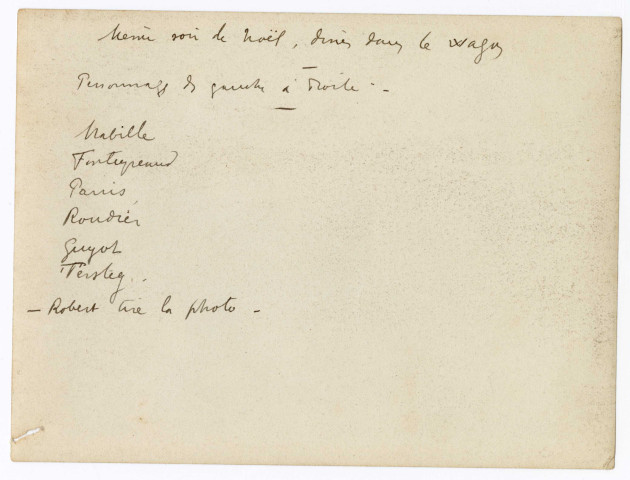 Même soir de Noël, dîner dans le wagon
Personnages de gauche à droite : -
Mabille
Parris
Roudier
Guyot
Tersteg..
- Robert tire la photo -